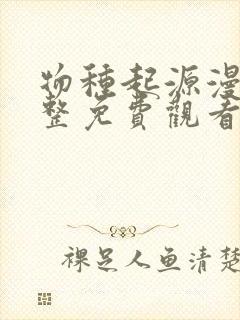 物種起源漫
整免費觀看
裸足人鱼清楚